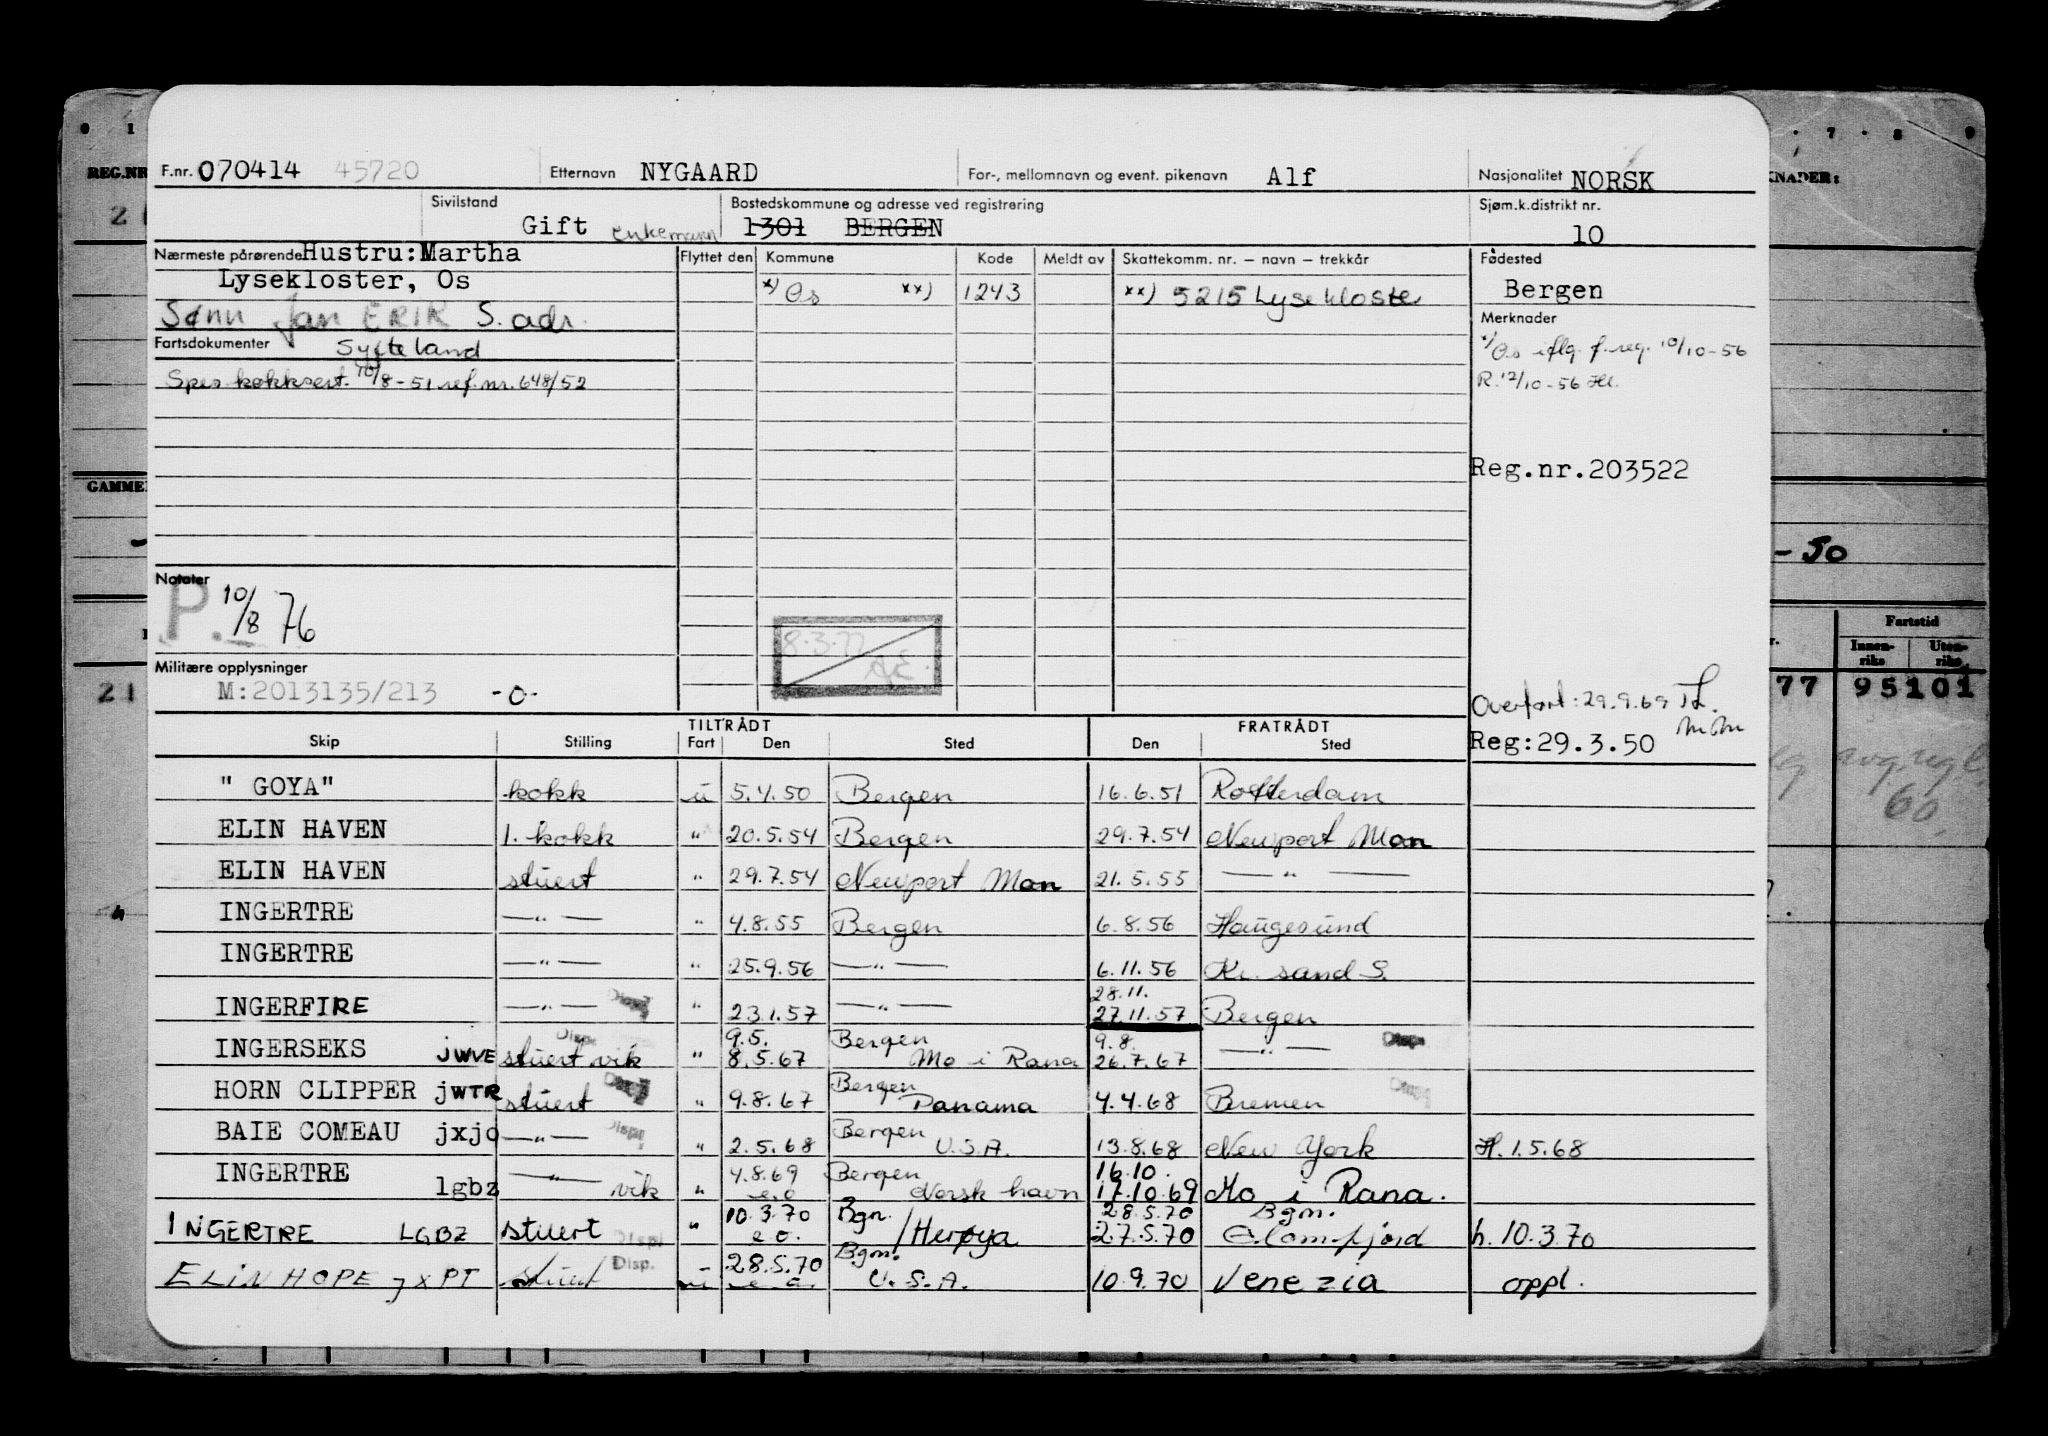 0 1 7 8 9
REG.NR KNADER:
F.nr. 070414 45720 Etternavn NYGAARD For-, mellomnavn og event. pikenavn Alf Nasjonalitet NORSK
21
Sivilstand Bostedskommune og adresse ved registrering Sjøm.k.distrikt nr.
Gift enkemann 1301 BERGEN 10
Nærmeste pårørende Hustru:Martha Flyttet den Kommune Kode Meldt av Skattekomm. nr. – navn – trekkår Fødested
Lysekloster, Os x) Os xx) 1243 xx) 5215 Lysekloster Bergen
Sønn Jan ERIK S. adr. Merknader
Fartsdokumenter Syfteland x) Os iflg. f.reg. 10/10-56
Spes.kokksert. 10/8-51 ref.nr. 648/52 R. 12/10-56
Reg.nr.203522
GAMME
-50
Notater
P. 10/8 76
8.3.77
Fartstid
Innenriks Utenriks
Militære opplysninger
M:2013135/213 -0-
21 77 95101
Overført: 29.9.69
TILTRÅDT FRATRÅDT
Skip Stilling Fart Den Sted Den Sted Reg:29.3.50
" GOYA" kokk u 5.4.50 Bergen 16.6.51 Rotterdam
ELIN HAVEN 1. kokk " 20.5.54 Bergen 29.7.54 Newport Mon
ELIN HAVEN stuert " 29.7.54 Newport Mon 21.5.55 — " —
INGERTRE — " — " 4.8.55 Bergen 6.8.56 Haugesund
INGERTRE — " — " 25.9.56 — " — 6.11.56 Kr. sand S.
28.11.
INGERFIRE — " — " 23.1.57 — " — 27.11.57 Bergen
Disp. 9.5. Bergen 9.8. Disp.
INGERSEKS jWVE stuert vik " 8.5.67 Mo i Rana 26.7.67 — " —
Bergen
HORN CLIPPER jWTR stuert " 9.8.67 Panama 4.4.68 Bremen
Bergen
BAIE COMEAU jxjo — " — Disp. " 2.5.68 U.S.A. 13.8.68 New York H. 1.5.68
INGERTRE 4.8.69 Bergen 16.10.
lgbz — " — vik " e.o Norsk havn 17.10.69 Mo i Rana.
10.3.70 Bgn. 28.5.70 Bgn.
INGERTRE LGBZ stuert Disp. " e o. /Herøya 27.5.70 Glomfjord h. 10.3.70
28.5.70 Bgn.
ELIN HOPE jxPT stuert Disp. u e o. U.S.A. 10.9.70 Venezia oppl.
60.